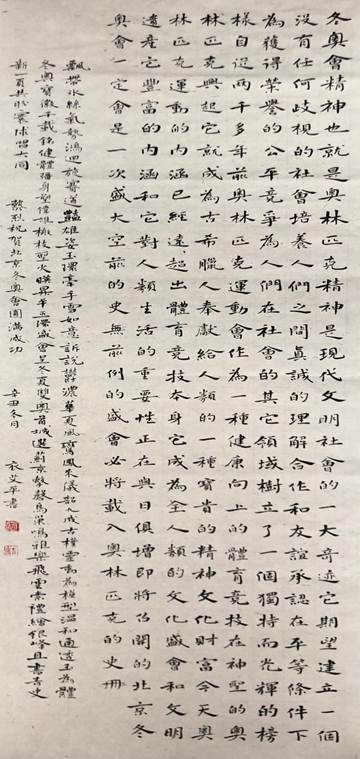 冬奧會精神也就是奧林匹克精神是現代文明社會的一大奇迹它期望建立一個
没有任何歧視的社會培養人們之間真誠的理解合作和友誼承認在平等條件下
為獲得榮譽的公平競爭為人們在社會的其它領域樹立了一個獨特而光輝的榜
樣自從兩千多年前奧林匹克運動會作為一種健康向上的體育競技在神聖的奧
林匹克興起它就成為古希臘人奉獻給人類的一種寶貴的精神文化財富今天奧
林匹克運動的内涵已經遠遠超出體育競技本身它成為全人類的文化盛會和文明
遺產它豐富的内涵和它對人類生活的重要性正在與日俱增即將召開的北京冬
奧會一定會是一次盛大空前的史無前例的盛會必將載入奧林匹克的史册
飄帶水絲氣勢鴻迴旋賽道豔雄姿玉環掌手雪如意訴說鬱濃華夏風鸞鳳來儀韶入成古樸靈動為模型温和通透玉為體
冬奧寶徽千載銘健體播身塑偉雄 枝聖火暎昇平五環盛會呈冬夏雙奧首城選薊京磬聲鳥巢鳴雅樂飛雲素禮繪銀 且書青史
新一頁共 寰球唱大同
熱烈祝賀北京冬奧會圓滿成功
辛丑冬月
袁艾平書